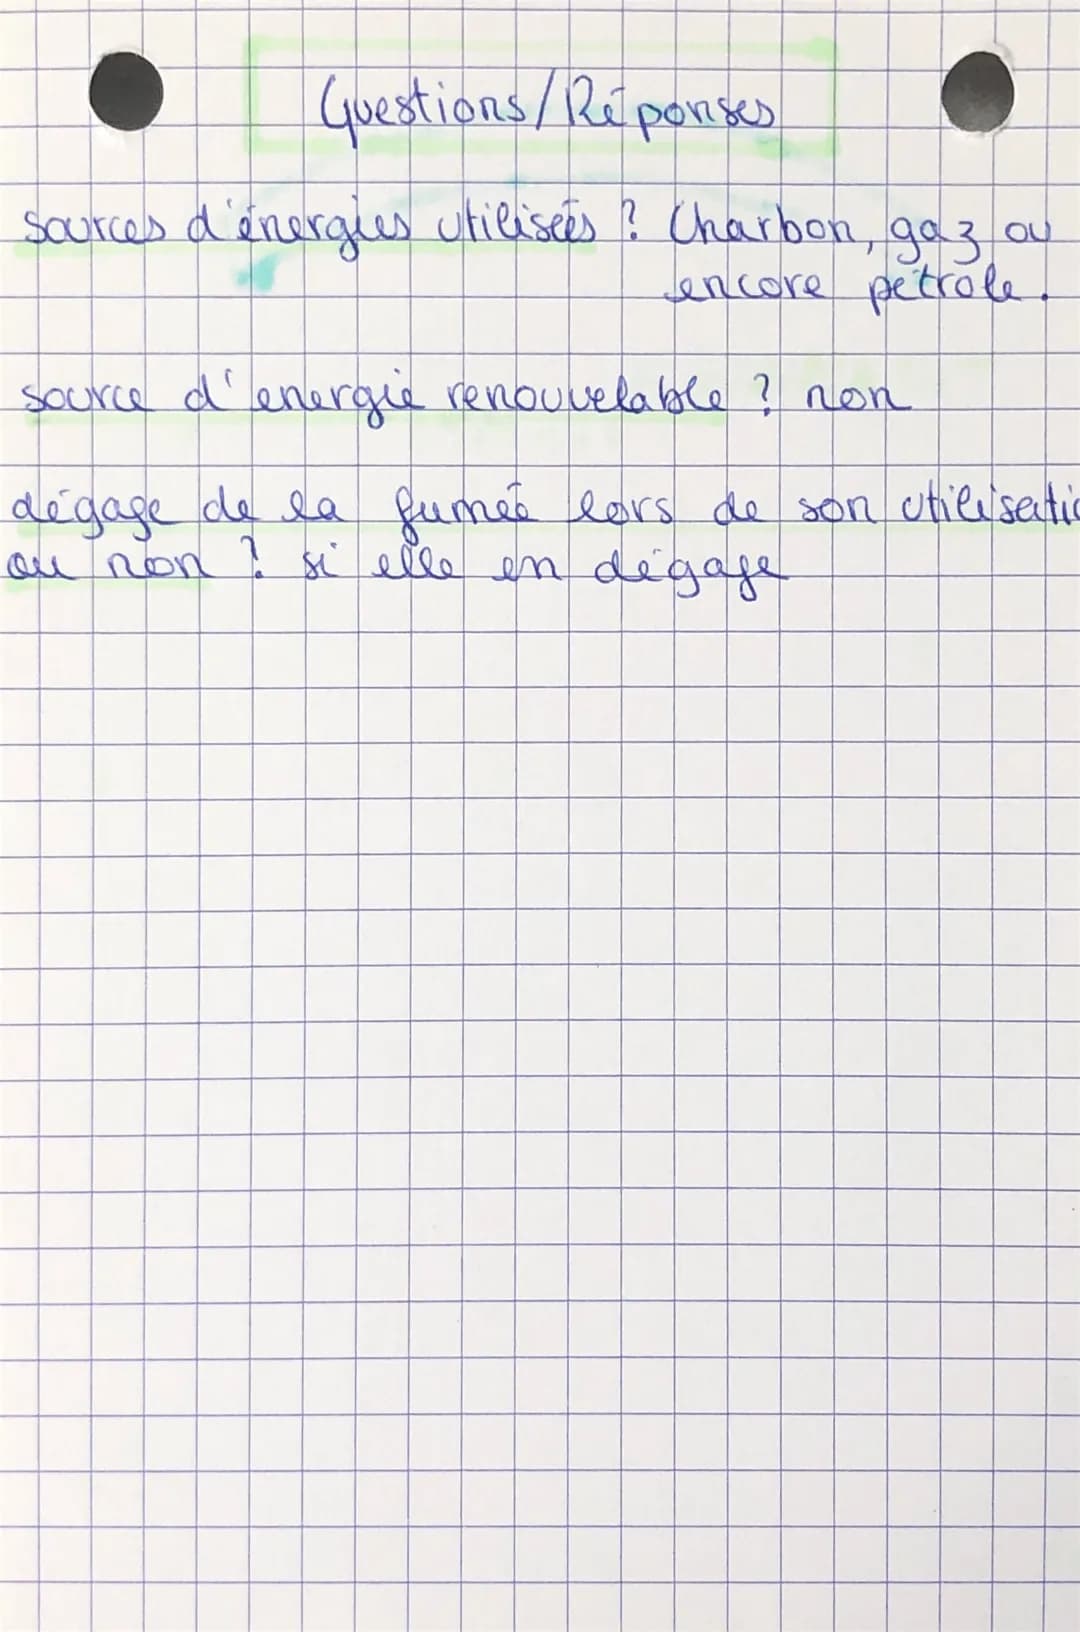 Questions/Réponses
sources d'énergies utilisées ? Charbon, gaz ou
encore pétrole.
source d'energie renouvelable ? non
dégage de la fumée lors de son utilisatio
ou non ? si elle en dégage